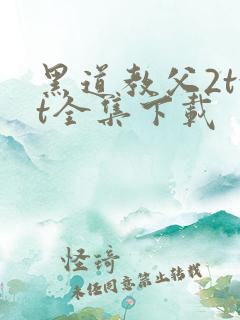 黑道教父2tx
t全集下载
怪琦
未经同意禁止转载